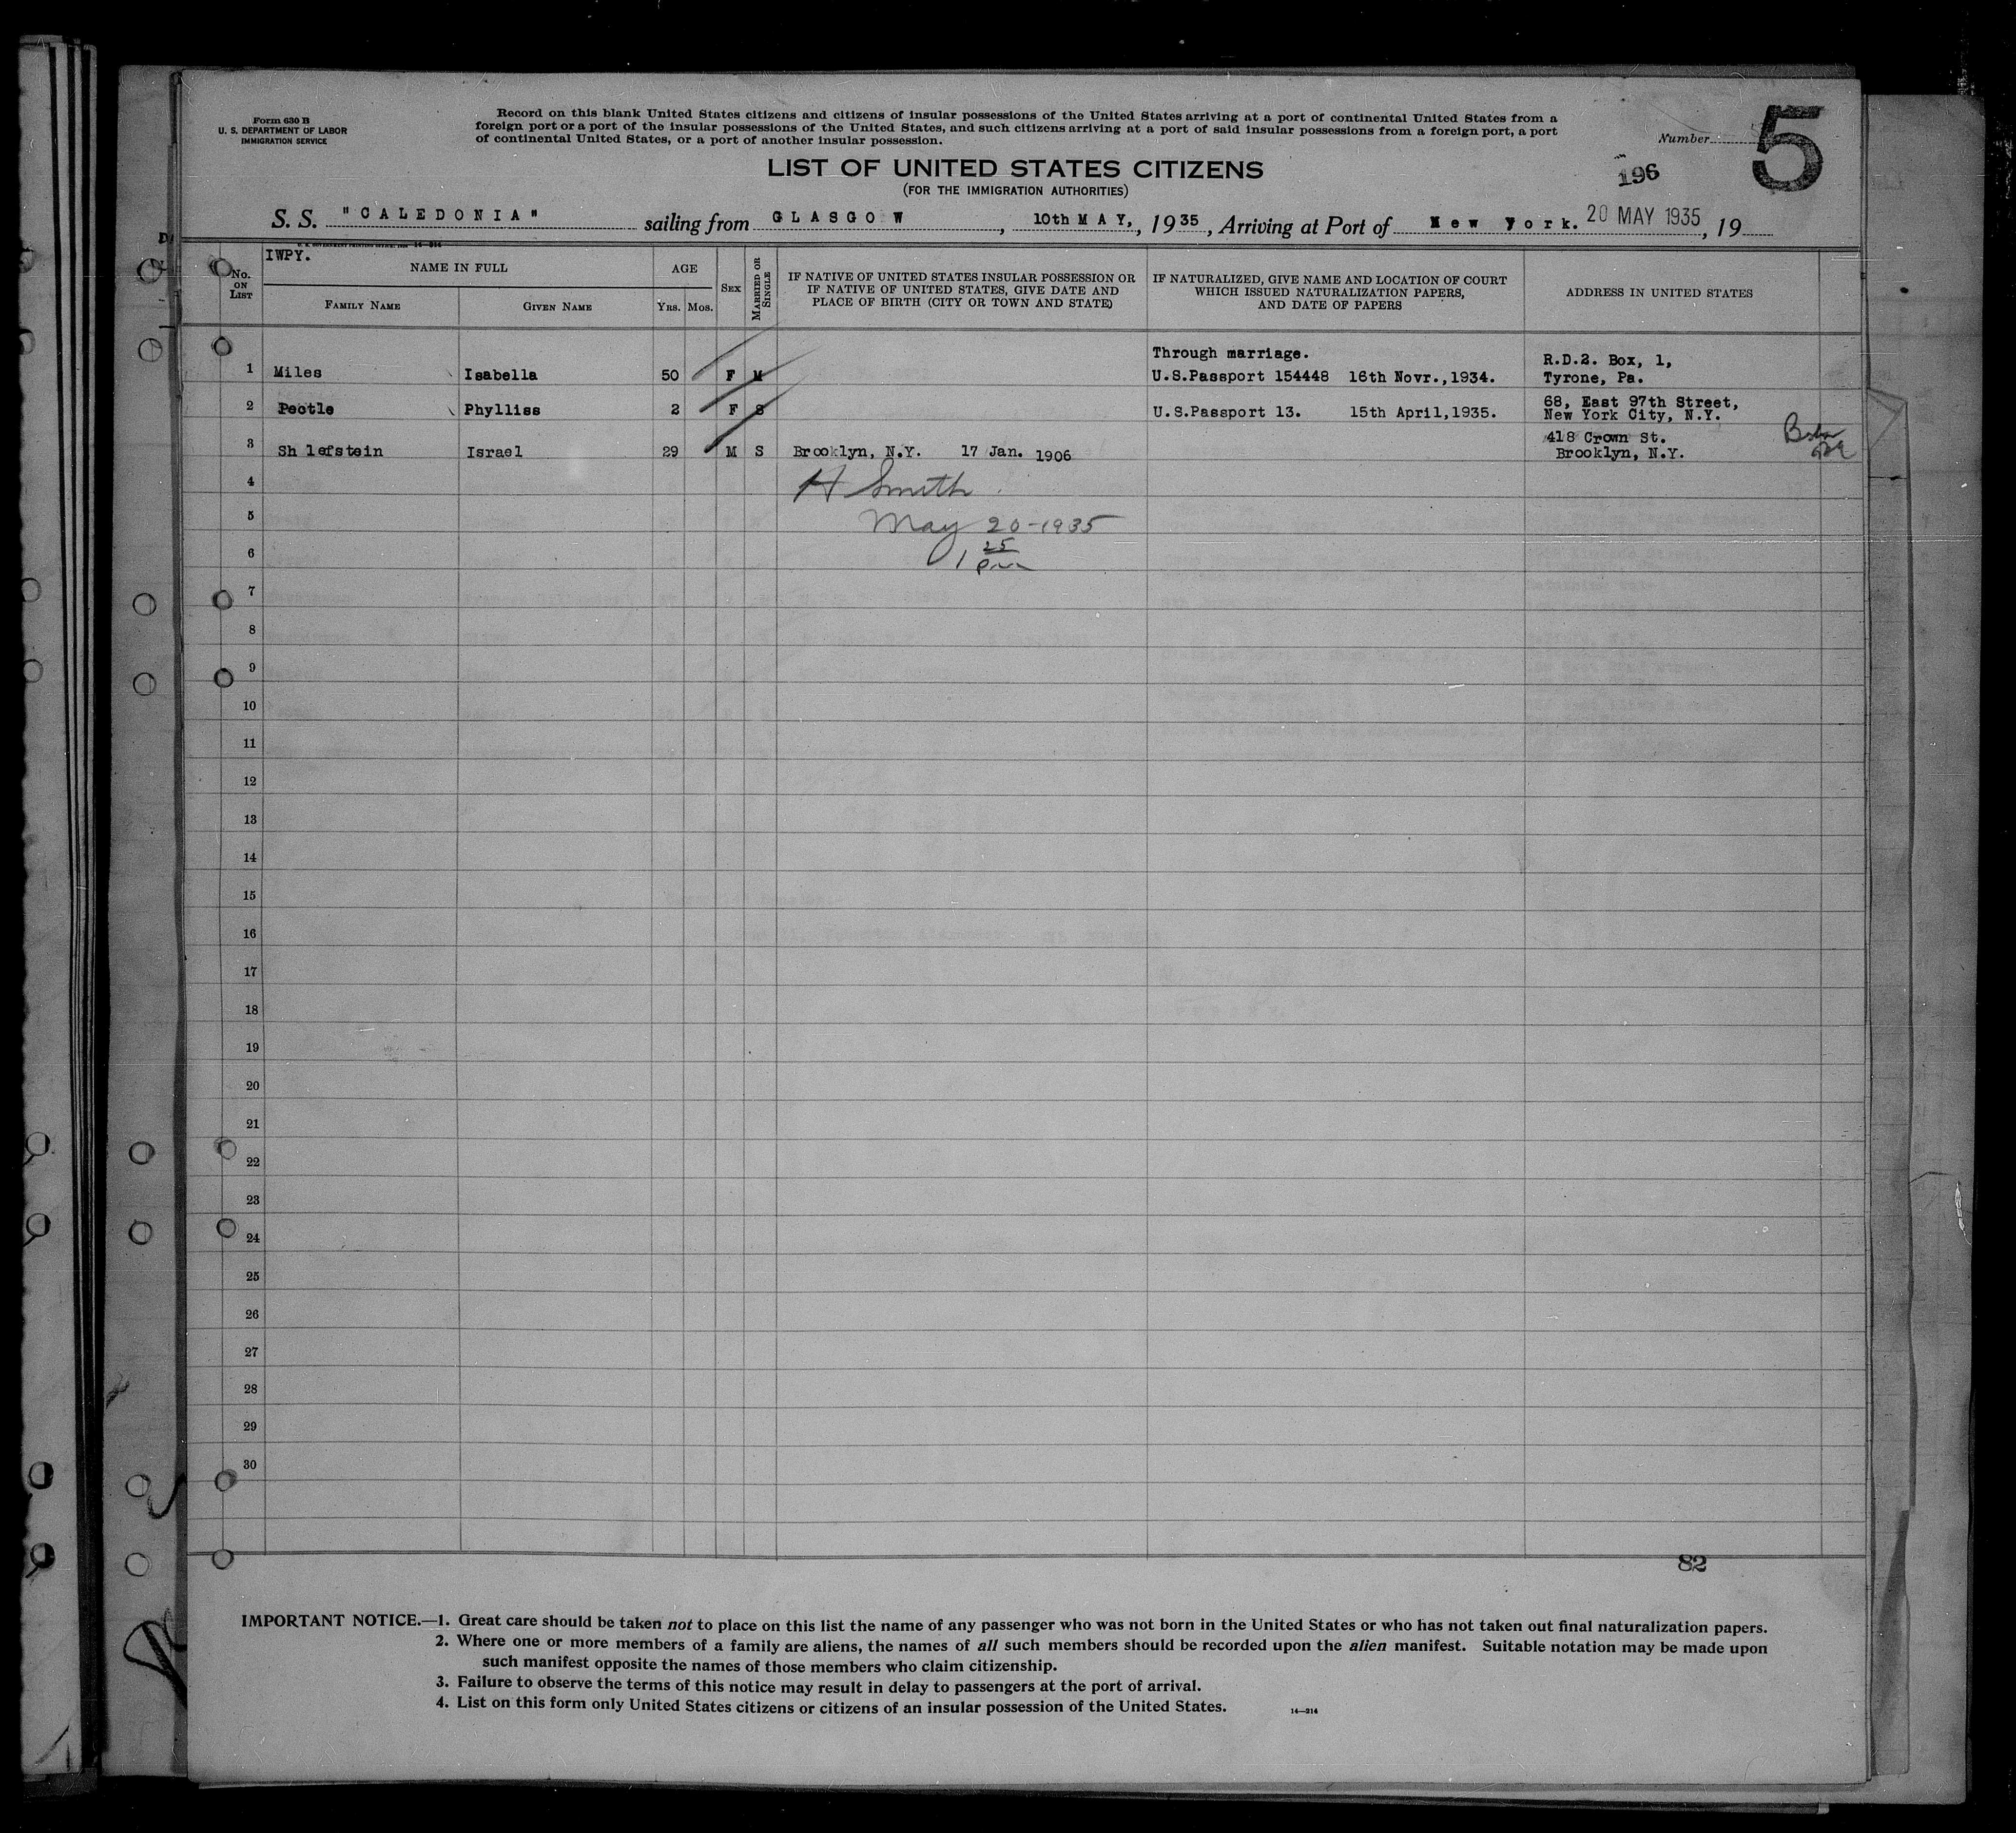 Form 630 B
U. S. DEPARTMENT OF LABOR
IMMIGRATION SERVICE
Record on this blank United States citizens and citizens of insular possessions of the United States arriving at a port of continental United States from a
foreign port or a port of the insular possessions of the United States, and such citizens arriving at a port of said insular possessions from a foreign port, a port
of continental United States, or a port of another insular possession.
Number
5
196
LIST OF UNITED STATES CITIZENS
(FOR THE IMMIGRATION AUTHORITIES)
S. S. "CALEDONIA" sailing from GLASGOW, 10th MAY, 1935, Arriving at Port of New York. 20 MAY 1935, 19
IWPY.
No. ON LIST
NAME IN FULL
FAMILY NAME
GIVEN NAME
AGE
YRS. MOS.
SEX
MARRIED OR SINGLE
IF NATIVE OF UNITED STATES INSULAR POSSESSION OR
IF NATIVE OF UNITED STATES, GIVE DATE AND
PLACE OF BIRTH (CITY OR TOWN AND STATE)
IF NATURALIZED, GIVE NAME AND LOCATION OF COURT
WHICH ISSUED NATURALIZATION PAPERS,
AND DATE OF PAPERS
ADDRESS IN UNITED STATES
Through marriage. R.D.2. Box, 1,
1 Miles Isabella 50 F M U.S.Passport 154448 16th Novr.,1934. Tyrone, Pa.
68, East 97th Street,
2 Peotle Phylliss 2 F S U.S.Passport 13. 15th April,1935. New York City, N.Y.
418 Crown St.
3 Sh lefstein Israel 29 M S Brooklyn, N.Y. 17 Jan. 1906 Brooklyn, N.Y.
4 H Smith
5 May 20-1935
6 1 25 pm
7
8
9
10
11
12
13
14
15
16
17
18
19
20
21
22
23
24
25
26
27
28
29
30
82
IMPORTANT NOTICE.—1. Great care should be taken not to place on this list the name of any passenger who was not born in the United States or who has not taken out final naturalization papers.
2. Where one or more members of a family are aliens, the names of all such members should be recorded upon the alien manifest. Suitable notation may be made upon
such manifest opposite the names of those members who claim citizenship.
3. Failure to observe the terms of this notice may result in delay to passengers at the port of arrival.
4. List on this form only United States citizens or citizens of an insular possession of the United States.
14—214